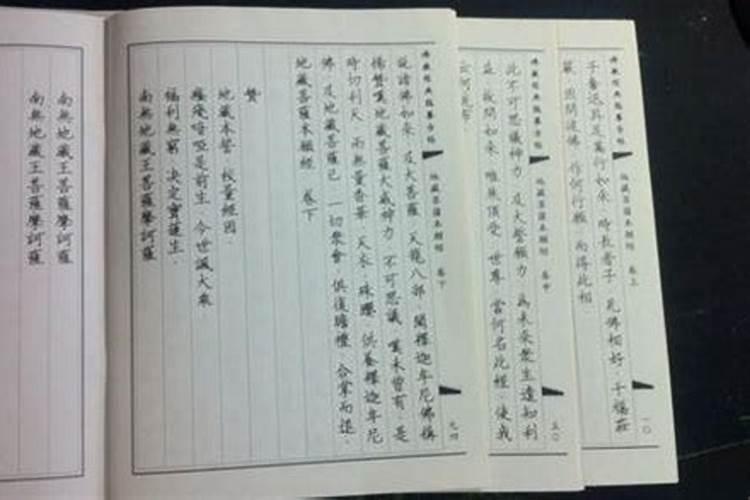 地藏菩薩本願經 卷上
一〇
子奮迅具足萬行如來 時長者子 見佛相好 千福莊
嚴 因問彼佛 作何行願 而得此相
地藏菩薩本願經 卷中
五〇
此不可思議神力 及大誓願力 為未來眾生達知利
益 故問如來 唯然頂受 世尊 當何名此經 使我
云何流布
地藏菩薩本願經 卷下
九四
說諸佛如來 及大菩薩 天龍八部 聞釋迦牟尼佛稱
揚贊嘆地藏菩薩大威神力 不可思議 嘆未曾有 是
時忉利天 雨無量香華 天衣 珠瓔 供養釋迦牟尼
佛 及地藏菩薩已 一切眾會 俱復瞻禮 合掌而退.
地藏菩薩本願經 卷下
贊
地藏本誓 校量經因.
癃殘喑啞是前生 今世誦大乘
福利無窮 決定寶蓮生.
南無地藏王菩薩摩訶薩
南無地藏王菩薩摩訶薩
南無地藏王菩薩摩訶薩